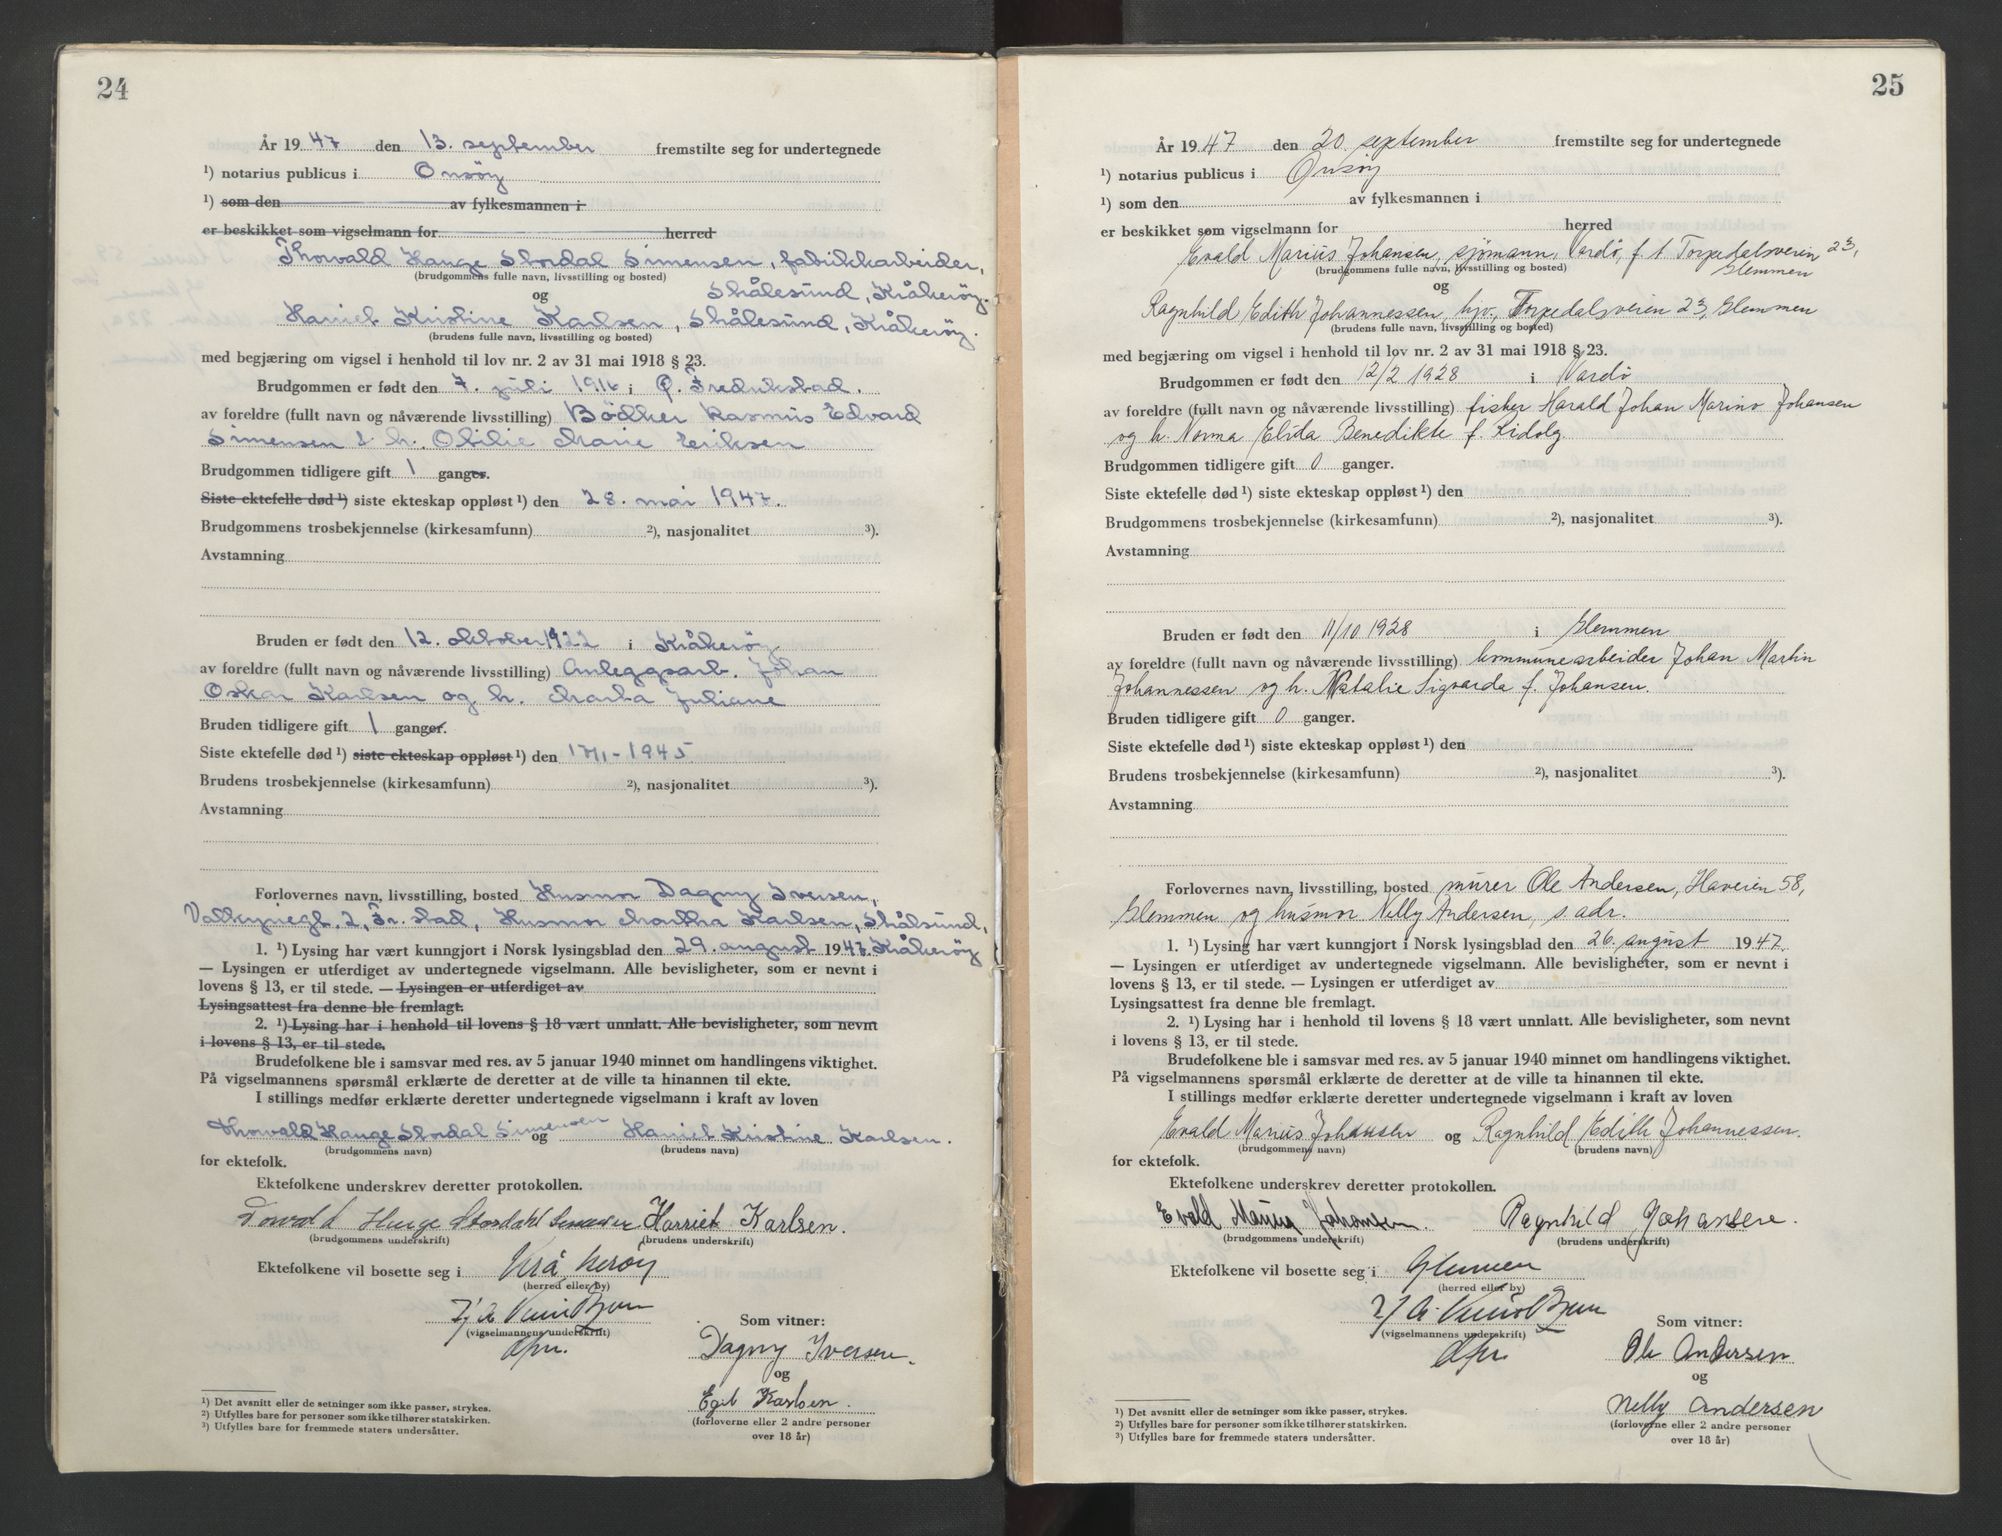 24
År 1947 den 13. september fremstilte seg for undertegnede
¹) notarius publicus i Onsöy
¹) som den av fylkesmannen i
er beskikket som vigselmann for herred
Thorvald Hauge Stordal Simensen, fabrikkarbeider,
(brudgommens fulle navn, livsstilling og bosted)
Skålesund, Kråkeröy.
og
Harriet Kristine Karlsen, Skålesund, Kråkeröy.
(brudens fulle navn, livsstilling og bosted)
med begjæring om vigsel i henhold til lov nr. 2 av 31 mai 1918 § 23.
Brudgommen er født den 7. juli 1916 i Ö. Fredrikstad.
av foreldre (fullt navn og nåværende livsstilling) Bödker Rasmus Edvard
Simensen & h. Otilie Marie Eriksen
Brudgommen tidligere gift 1 ganger.
Siste ektefelle død ¹) siste ekteskap oppløst ¹) den 28. mai 1947.
Brudgommens trosbekjennelse (kirkesamfunn) ²), nasjonalitet ³).
Avstamning
Bruden er født den 12. oktober 1922 i Kråkeröy
av foreldre (fullt navn og nåværende livsstilling) Anleggsarb. Johan
Oskar Karlsen og h. Marta Juliane
Bruden tidligere gift 1 ganger.
Siste ektefelle død ¹) siste ekteskap oppløst ¹) den 17/1-1945
Brudens trosbekjennelse (kirkesamfunn) ²), nasjonalitet ³).
Avstamning
Forlovernes navn, livsstilling, bosted Husmor Dagny Iversen,
Valkyriegt. 2, Fr.stad, Husmor Martha Karlsen, Skålsund,
1. ¹) Lysing har vært kunngjort i Norsk lysingsblad den 29. august 1947. Kråkeröy
— Lysingen er utferdiget av undertegnede vigselmann. Alle bevisligheter, som er nevnt i
lovens § 13, er til stede. — Lysingen er utferdiget av
Lysingsattest fra denne ble fremlagt.
2. ¹) Lysing har i henhold til lovens § 18 vært unnlatt. Alle bevisligheter, som nevnt
i lovens § 13, er til stede.
Brudefolkene ble i samsvar med res. av 5 januar 1940 minnet om handlingens viktighet.
På vigselmannens spørsmål erklærte de deretter at de ville ta hinannen til ekte.
I stillings medfør erklærte deretter undertegnede vigselmann i kraft av loven
Thorvald Hauge Stordal Simensen og Harriet Kristine Karlsen.
(brudgommens navn) (brudens navn)
for ektefolk.
Ektefolkene underskrev deretter protokollen.
Hauge Stordahl Simensen Harriet Karlsen.
(brudgommens underskrift) (brudens underskrift)
Ektefolkene vil bosette seg i Kråkeröy
(herred eller by)
(vigselmannens underskrift)
Som vitner:
Dagny Iversen.
og
Egil Karlsen.
(forloverne eller 2 andre personer
over 18 år)
¹) Det avsnitt eller de setninger som ikke passer, strykes.
²) Utfylles bare for personer som ikke tilhører statskirken.
³) Utfylles bare for fremmede staters undersåtter.
25
År 1947 den 20. september fremstilte seg for undertegnede
¹) notarius publicus i Onsöy
¹) som den av fylkesmannen i
er beskikket som vigselmann for herred
Evald Marius Johansen, sjömann, Vardö, f.t. Torpedalsveien 23,
(brudgommens fulle navn, livsstilling og bosted)
Glemmen
og
Ragnhild Edith Johannessen, hjv., Torpedalsveien 23, Glemmen
(brudens fulle navn, livsstilling og bosted)
med begjæring om vigsel i henhold til lov nr. 2 av 31 mai 1918 § 23.
Brudgommen er født den 12/2 1928 i Vardö
av foreldre (fullt navn og nåværende livsstilling) fisker Harald Johan Marino Johansen
og h. Norma Elida Benedikte f.
Brudgommen tidligere gift 0 ganger.
Siste ektefelle død ¹) siste ekteskap oppløst ¹) den
Brudgommens trosbekjennelse (kirkesamfunn) ²), nasjonalitet ³).
Avstamning
Bruden er født den 11/10 1928 i Glemmen
av foreldre (fullt navn og nåværende livsstilling) kommunearbeider Johan Martin
Johannessen og h. Natalie Sigvarda f. Johansen.
Bruden tidligere gift 0 ganger.
Siste ektefelle død ¹) siste ekteskap oppløst ¹) den
Brudens trosbekjennelse (kirkesamfunn) ²), nasjonalitet ³).
Avstamning
Forlovernes navn, livsstilling, bosted murer Ole Andersen, Haveien 58,
Glemmen og husmor Nelly Andersen, s. adr.
1. ¹) Lysing har vært kunngjort i Norsk lysingsblad den 26. august 1947.
— Lysingen er utferdiget av undertegnede vigselmann. Alle bevisligheter, som er nevnt i
lovens § 13, er til stede. — Lysingen er utferdiget av
Lysingsattest fra denne ble fremlagt.
2. ¹) Lysing har i henhold til lovens § 18 vært unnlatt. Alle bevisligheter, som nevnt
i lovens § 13, er til stede.
Brudefolkene ble i samsvar med res. av 5 januar 1940 minnet om handlingens viktighet.
På vigselmannens spørsmål erklærte de deretter at de ville ta hinannen til ekte.
I stillings medfør erklærte deretter undertegnede vigselmann i kraft av loven
Evald Marius Johansen og Ragnhild Edith Johannessen.
(brudgommens navn) (brudens navn)
for ektefolk.
Ektefolkene underskrev deretter protokollen.
Evald Marius Johansen. Ragnhild Johansen.
(brudgommens underskrift) (brudens underskrift)
Ektefolkene vil bosette seg i Glemmen
(herred eller by)
(vigselmannens underskrift)
Som vitner:
Ole Andersen
og
Nelly Andersen
(forloverne eller 2 andre personer
over 18 år)
¹) Det avsnitt eller de setninger som ikke passer, strykes.
²) Utfylles bare for personer som ikke tilhører statskirken.
³) Utfylles bare for fremmede staters undersåtter.